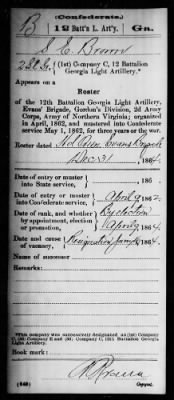 (Confederate.)
B 12 Batt'n L. Art'y. Ga.
S. C. Brown
2d Lt., (1st) Company C, 12 Battalion
Georgia Light Artillery.*
Appears on a
Roster
of the 12th Battalion Georgia Light Artillery,
Evans' Brigade, Gordon's Division, 2d Army
Corps, Army of Northern Virginia; organized
in April, 1862, and mustered into Confederate
service May 1, 1862, for three years or the war.
Roster dated Evans Brigade
Dec 31, 1864.
Date of entry or muster
into State service, , 186 .
Date of entry or muster
into Confederate service, April 9 1862.
Date of rank, and whether
by appointment, election
or promotion, By election
April 9 1864.
Date and cause
of vacancy, Resignation 1864.
Name of successor
Remarks:
*This company was successively designated as (1st) Company
C, (2d) Company E and (2d) Company C, 12th Battalion Georgia
Light Artillery.
Book mark:
(648) Copyist.